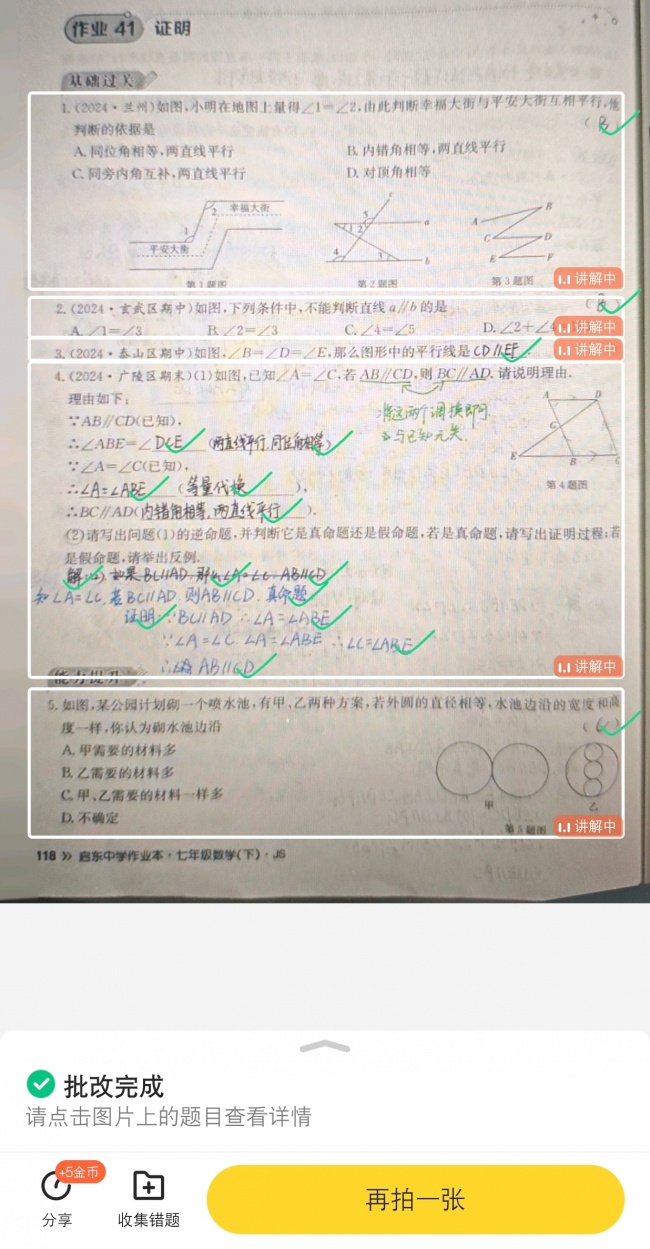 作业 41 证明
基础过关
1. (2024·兰州)如图,小明在地图上量得∠1=∠2,由此判断幸福大街与平安大街互相平行,他
判断的依据是 (B)
A. 同位角相等,两直线平行 B. 内错角相等,两直线平行
C. 同旁内角互补,两直线平行 D. 对顶角相等
幸福大街
平安大街
第1题图 第2题图 第3题图
讲解中
2. (2024·玄武区期中)如图,下列条件中,不能判断直线a//b的是
A. ∠1=∠3 B. ∠2=∠3 C. ∠4=∠5 D. ∠2+∠4
讲解中
3. (2024·泰山区期中)如图,∠B=∠D=∠E,那么图形中的平行线是CD//EF.
讲解中
4. (2024·广陵区期末)(1)如图,已知∠A=∠C,若AB//CD,则BC//AD.请说明理由.
理由如下:
∵AB//CD(已知),
∴∠ABE=∠DCE (两直线平行,同位角相等)
∵∠A=∠C(已知),
∴∠A=∠ABE (等量代换),
∴BC//AD(内错角相等,两直线平行).
将这两个调换即可
与已知无关.
第4题图
(2)请写出问题(1)的逆命题,并判断它是真命题还是假命题,若是真命题,请写出证明过程;若
是假命题,请举出反例.
解:(2) 如果BC//AD,那么∠A=∠C AB//CD
知∠A=∠C,若BC//AD,则AB//CD.真命题
证明:∵BC//AD ∴∠A=∠ABE
∵∠A=∠C ∠A=∠ABE ∴∠C=∠ABE
AB//CD
讲解中
能力提升
5. 如图,某公园计划砌一个喷水池,有甲、乙两种方案,若外圆的直径相等,水池边沿的宽度和高
度一样,你认为砌水池边沿 (C)
A. 甲需要的材料多
B. 乙需要的材料多
C. 甲、乙需要的材料一样多
D. 不确定
甲 乙
第5题图
讲解中
118 》 启东中学作业本·七年级数学(下)·JS
批改完成
请点击图片上的题目查看详情
+5金币
分享 收集错题 再拍一张